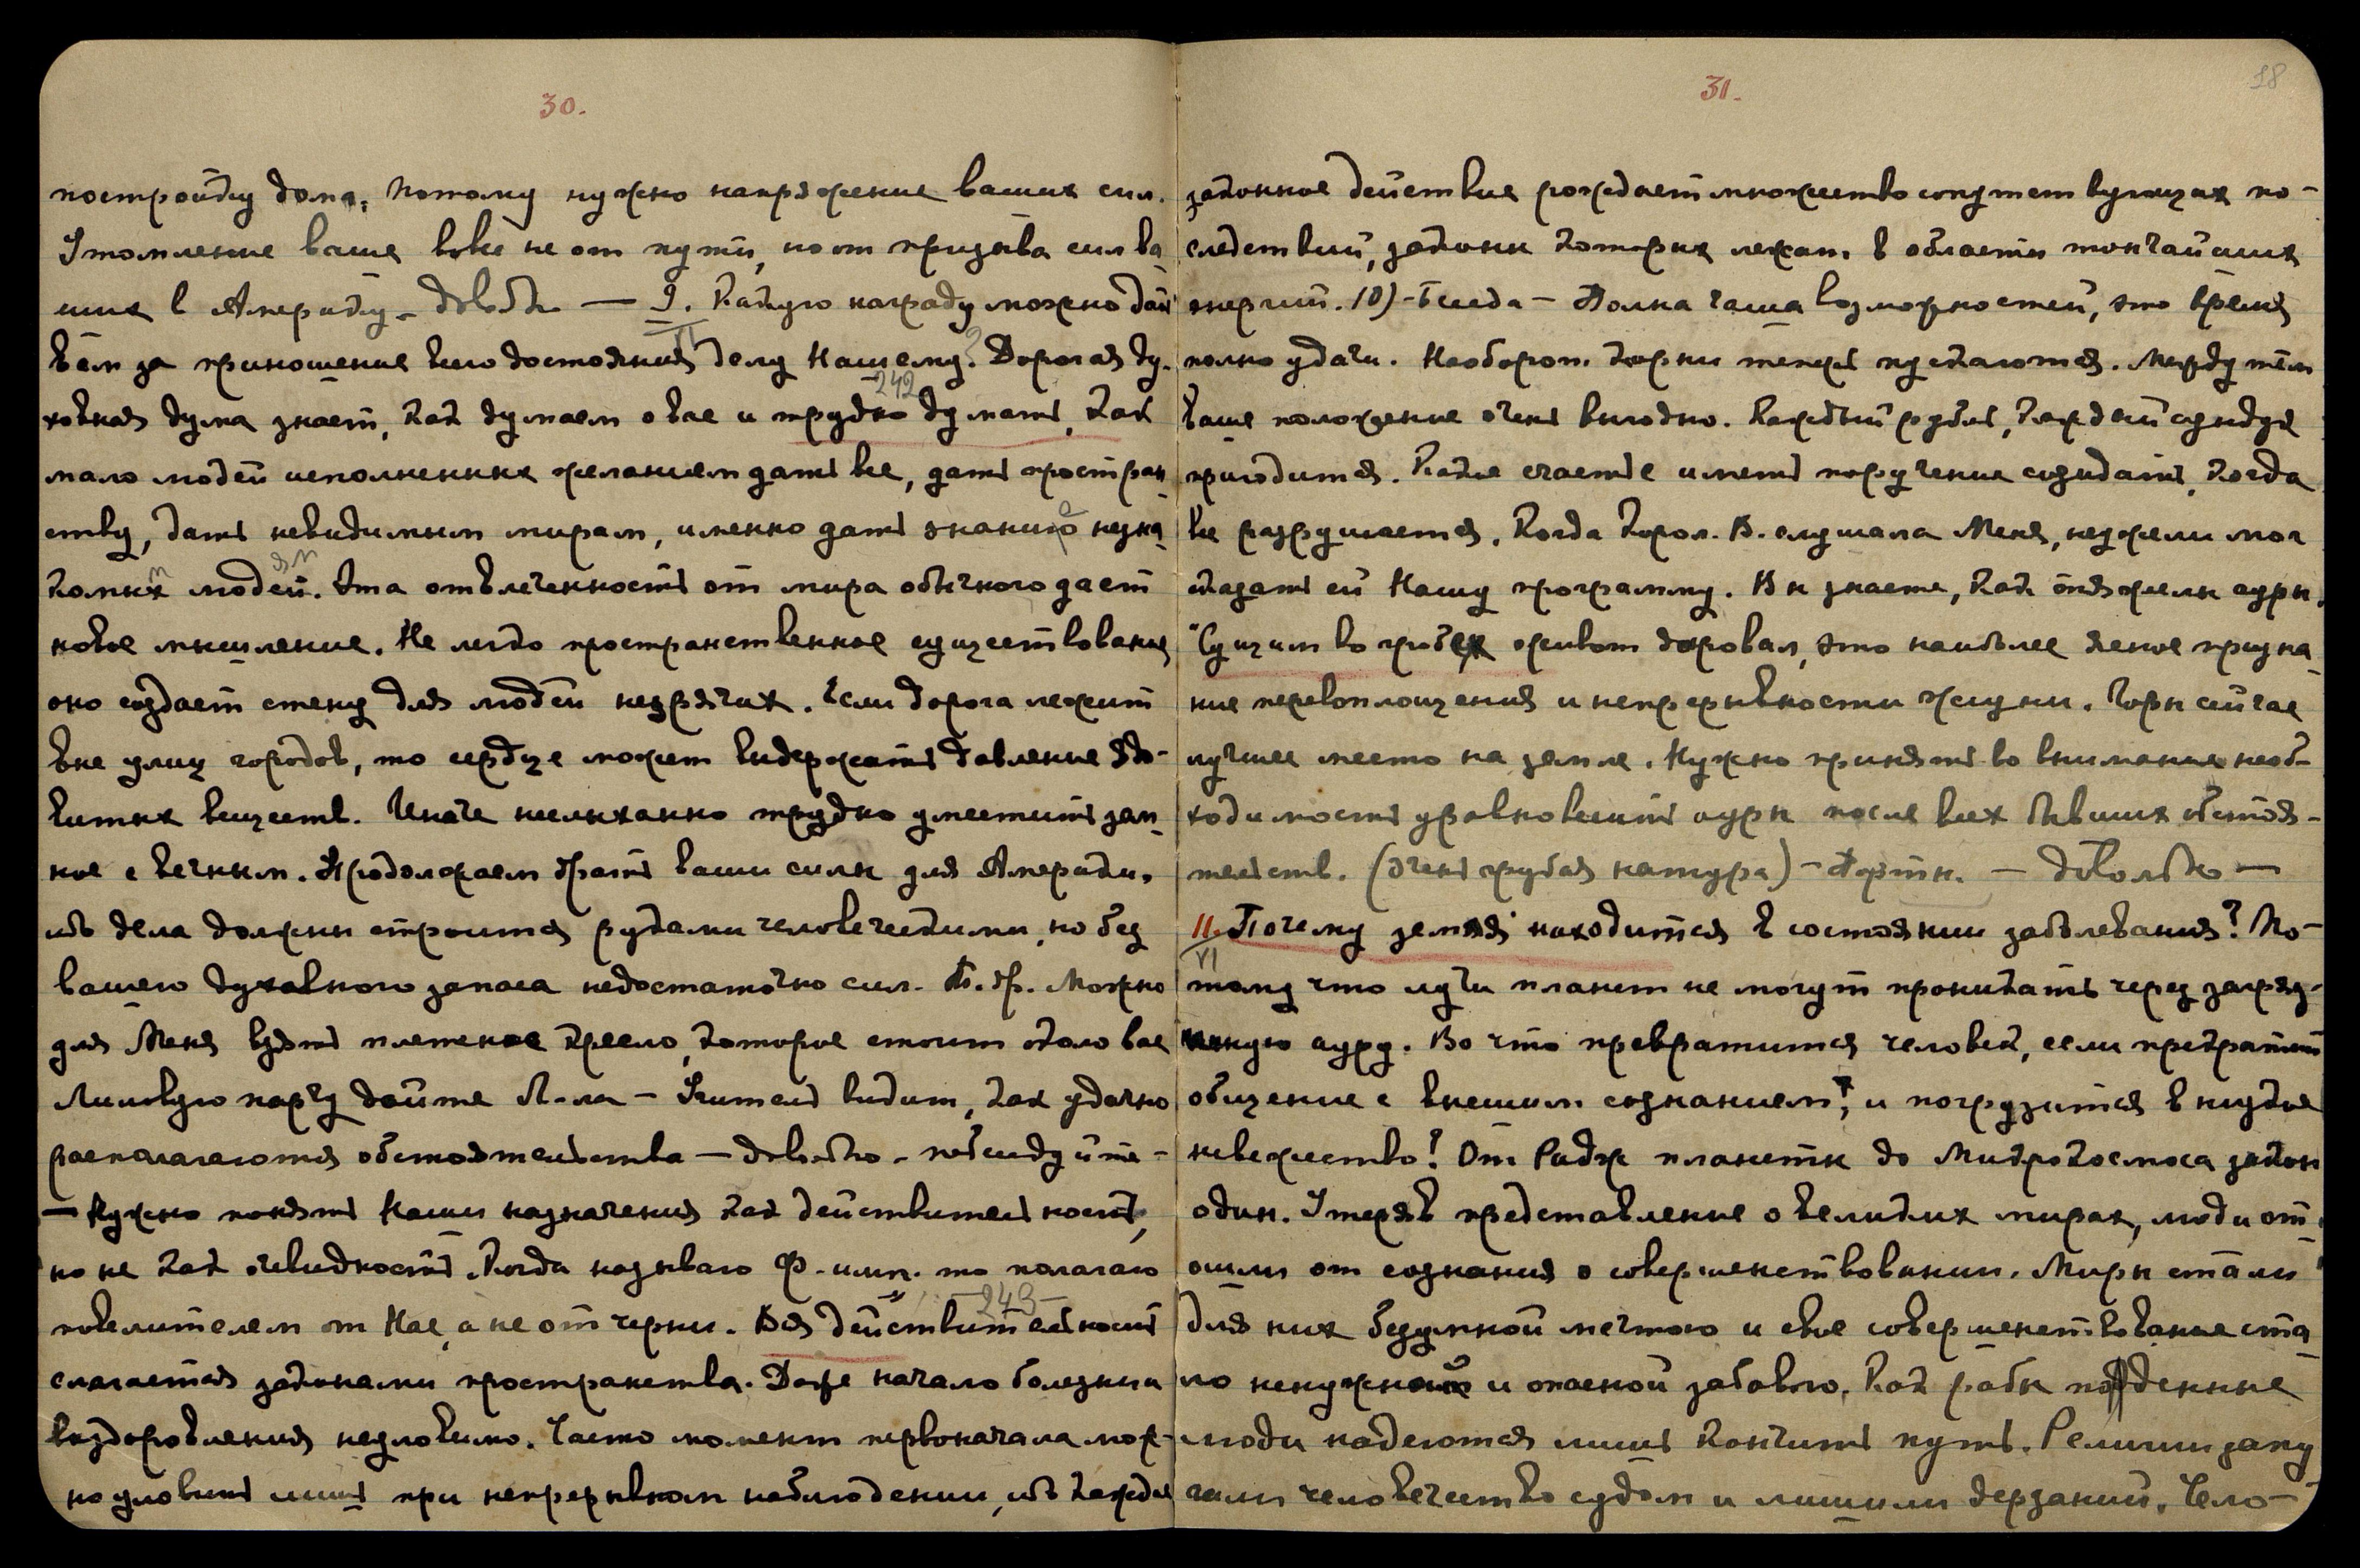 30.
постройку дома. Потому нужно напряжение ваших сил.
Утомление ваше вовсе не от пути, но от призыва сил ва-
ших в Америку. Довольно — 9. Какую награду можно дать
VI
вам за приношение всего достояния делу Нашему? Дорогая ду-
242
ховная дума знает, как думаем о вас и трудно думать, как
мало людей исполненных желанием дать все, дать простран-
ству, дать невидимым мирам, именно дать знание незна-
комым людям. Эта отвлеченность от мира обычного дает
новое мышление. Не легко пространственное существование,
оно создает стену для людей незрячих. Если дорога лежит
вне улиц городов, то сердце может выдержать давление ядо-
витых веществ. Иначе несказанно трудно уместить зем-
ное с вечным. Продолжаем брать ваши силы для Америки,
ибо дела должны строиться руками человеческими, но без
вашего духовного запаса недостаточно сил. Можно
для Меня взять плетеное кресло, которое стоит около вас
Лиловую парчу дайте Л-ла — Учитель видит, как удачно
располагаются обстоятельства — довольно - побеседуйте -
— Нужно понять Наши назначения как действительность,
но не как очевидность. Когда называю Ф. имп. то полагаю
243
повелителем от Нас, а не от черни. Вся действительность
слагается законами пространства. Даже начало болезни и
выздоровления неуловимо. Часто момент первоначала мож-
но уловить лишь при непрерывном наблюдении, ибо каждое
18
31.
законное действие рождает множество сопутствующих по-
следствий, законы которых лежат в области тончайших
энергий. 10) - Беседа - Полна чаша возможностей, это время
полно удачи. Наоборот. карты теперь пускаются. Между тем
ваше положение очень выгодно. Каждый рубль, каждый сундук
пригодится. Какое счастье иметь поручение создать, когда
все разрушается. Когда Корол. В. слушала Меня, неужели мог
сказать ей Нашу программу. Вы знаете, как отяжелы ауры.
"Сущим во гробех живот даровал, это наиболее ясное призна-
ние перевоплощения и непрерывности жизни. Горы сейчас
лучшее место на земле. Нужно принять во внимание необ-
ходимость уравновесить ауры после всех бывших обстоя-
тельств. (Очень грубая натура) - Портн. — довольно —
11. Почему земля находится в состоянии заболевания? По-
VI
тому что лучи планет не могут проникать через загряз-
ненную ауру. Во что превратится человек, если прекратит
общение с внешним сознанием? и погрузится в низкое
невежество! От Радж планеты до Микрокосмоса закон
один. Утеряв представление о великих мирах, люди от-
ошли от сознания о совершенствовании. Миры стали
для них безумной мечтою и свое совершенствование ста-
ло ненужной и опасной забавою. Как рабы поденные
люди надеются лишь кончить путь. Религии запу-
гали человечество судом и лишили дерзаний. Чело-